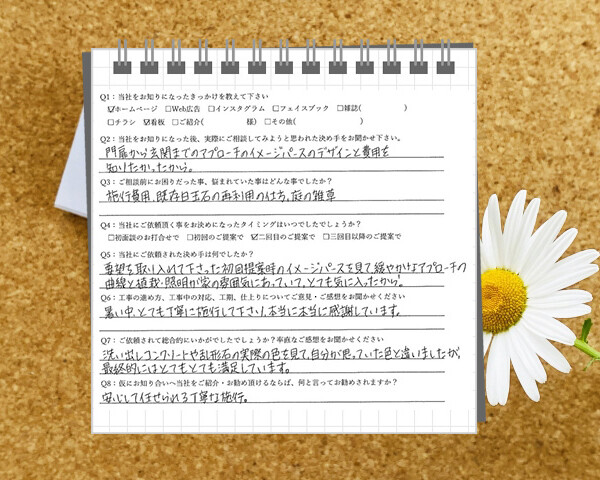 Q1：当社をお知りになったきっかけを教えて下さい
☑ホームページ □Web広告 □インスタグラム □フェイスブック □雑誌( )
□チラシ ☑看板 □ご紹介( 様) □その他( )
Q2：当社をお知りになった後、実際にご相談してみようと思われた決め手をお聞かせ下さい。
門扉から玄関までのアプローチのイメージパースのデザインと費用を
知りたかったから。
Q3：ご相談前にお困りだった事、悩まれていた事はどんな事でしたか？
施行費用、既存自玉石の再利用の仕方、庭の雑草
Q4：当社にご依頼頂く事をお決めになったタイミングはいつでしたでしょうか？
□初面談のお打合せで □初回のご提案で ☑二回目のご提案で □三回目以降のご提案で
Q5：当社にご依頼された決め手は何でしたか？
要望を取り入れて下さった初回提案時のイメージパースを見て緩やかなアプローチの
曲線と植栽・照明が家の雰囲気にあっていて、とても気に入ったから。
Q6：工事の進め方、工事中の対応、工期、仕上りについてご意見・ご感想をお聞かせください
暑い中、とても丁寧に施行して下さり、本当に本当に感謝しています。
Q7：ご依頼されて総合的にいかがでしたでしょうか？率直なご感想をお聞かせください
洗い出しコンクリートや乱形石の実際の色を見て、自分が思っていた色と違いましたが、
最終的にはとてもとても満足しています。
Q8：仮にお知り合いへ当社をご紹介・お勧め頂けるならば、何と言ってお勧めされますか？
安心して任せられる丁寧な施行。